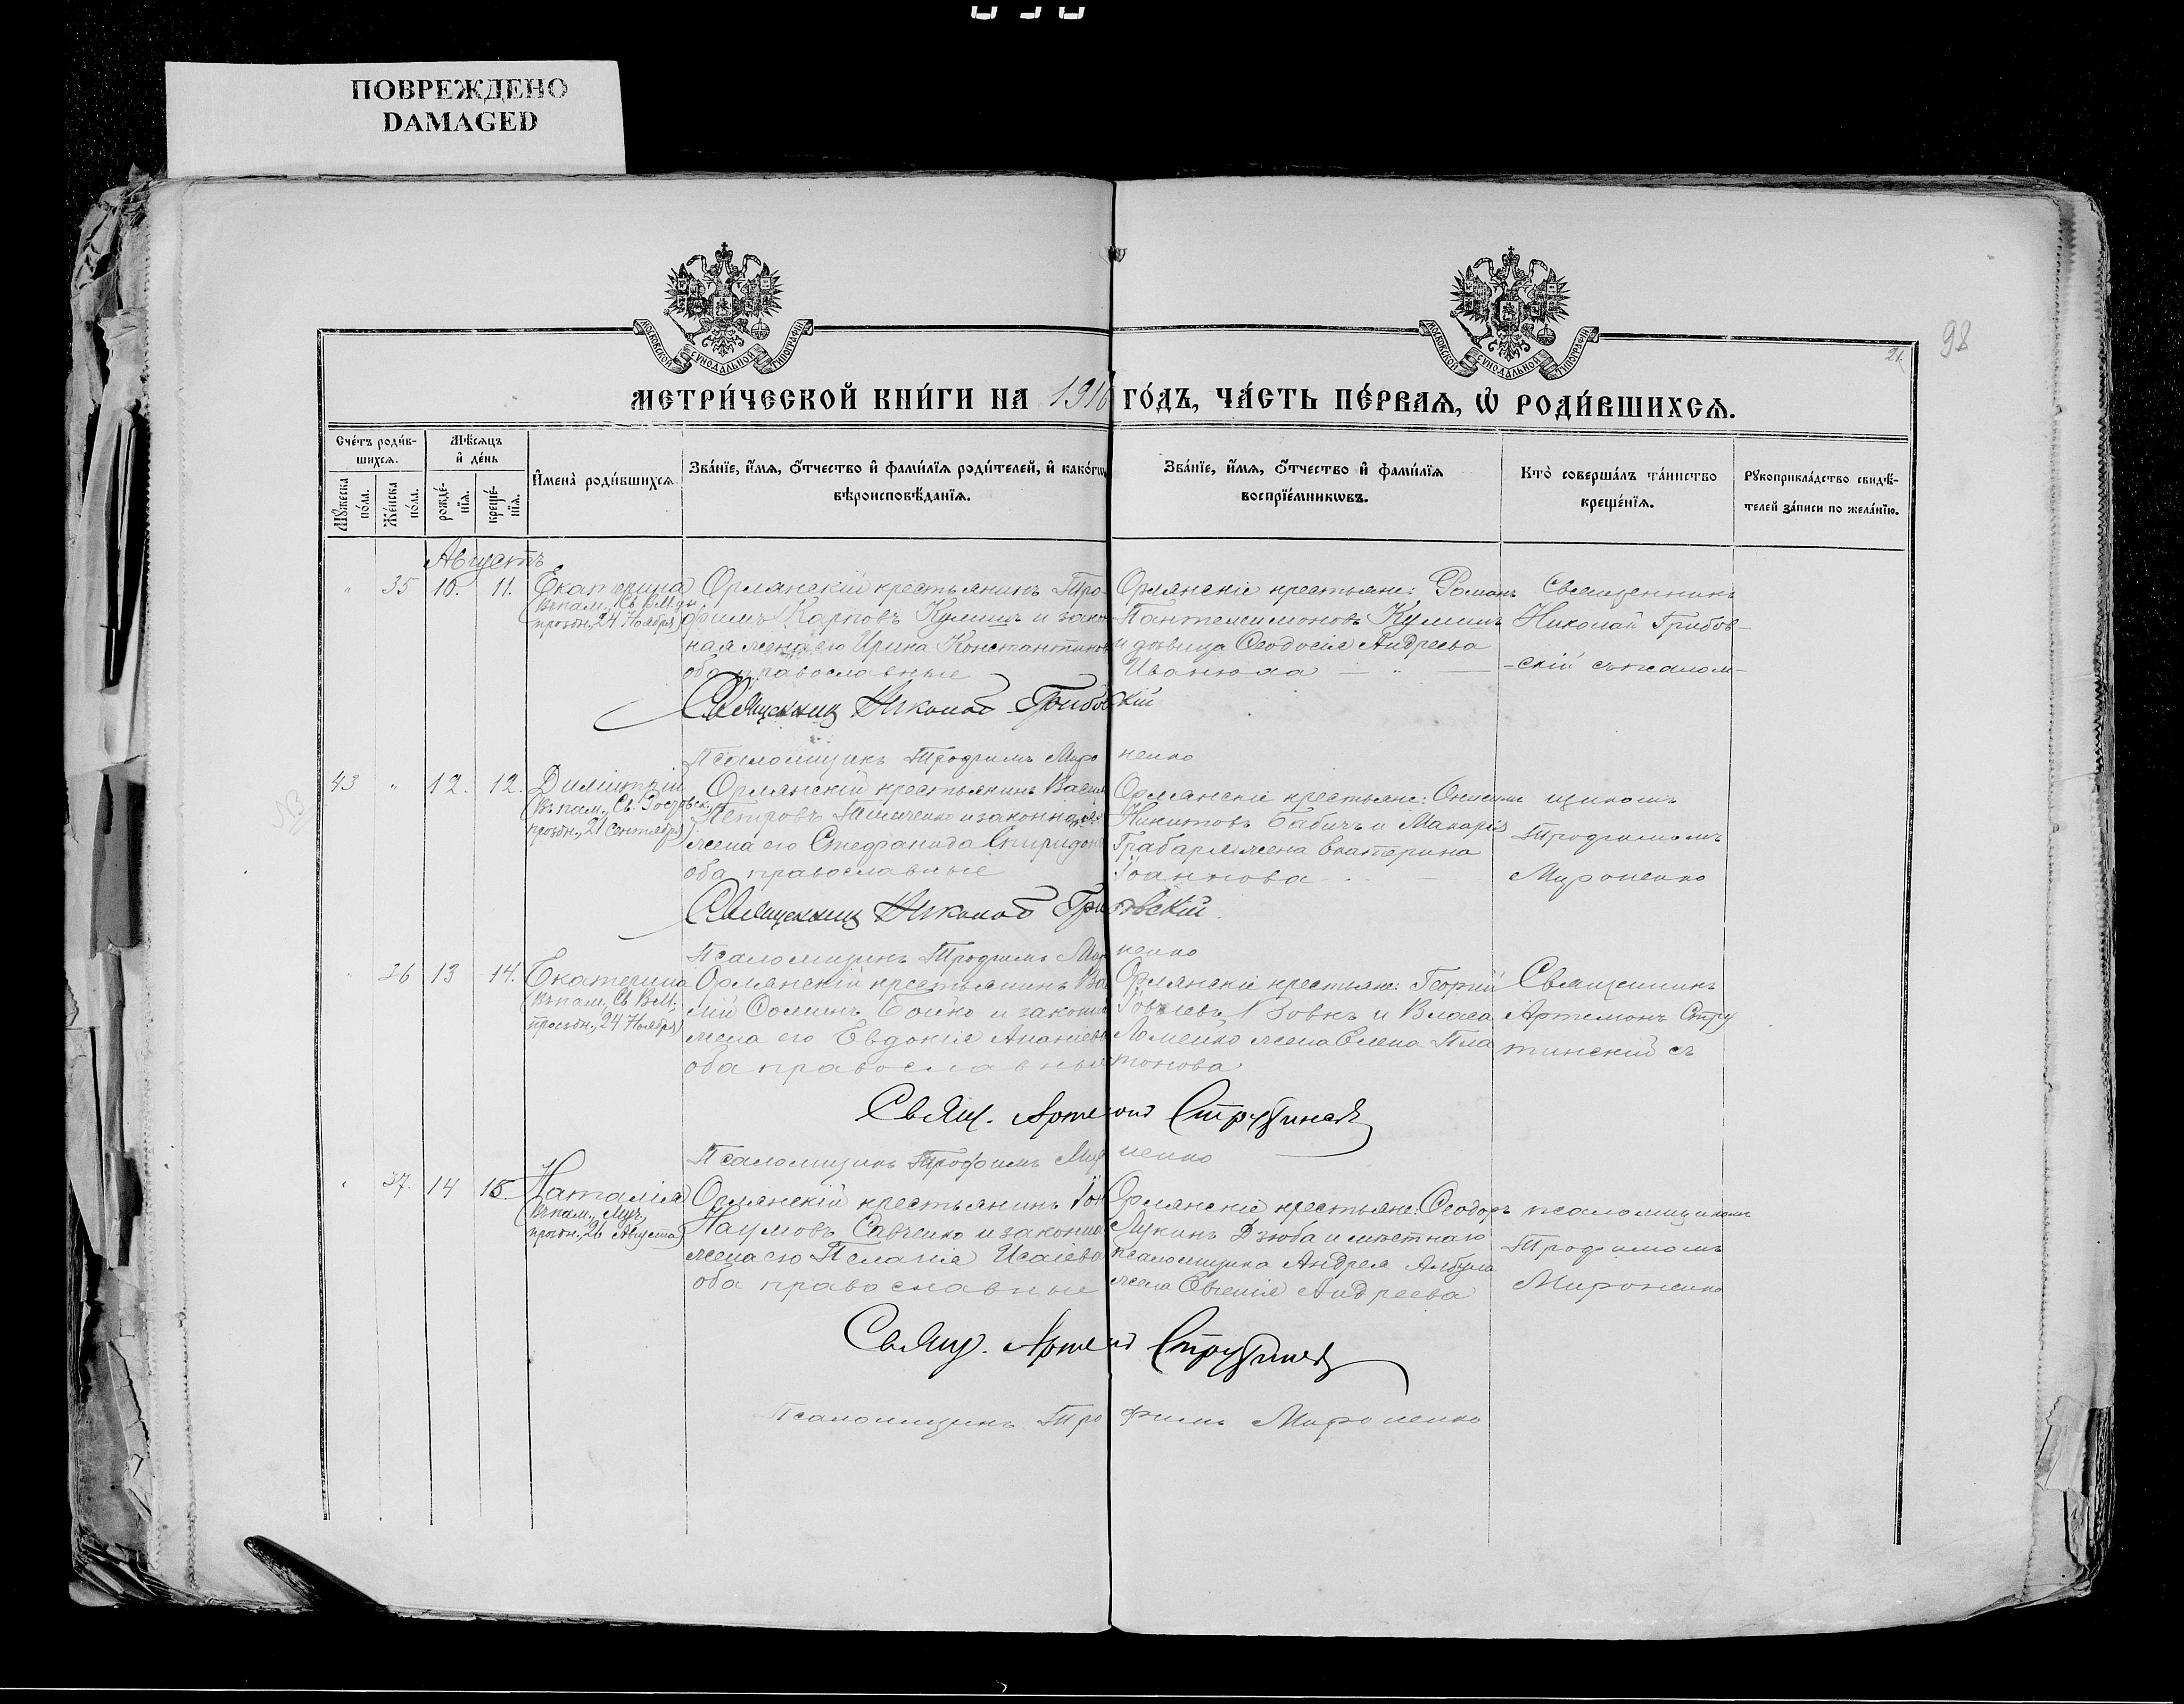 ПОВРЕЖДЕНО
DAMAGED
98
21.
МОСКОВСКОЙ СѴНОДАЛЬНОЙ ТИПОГРАФІИ
МОСКОВСКОЙ СѴНОДАЛЬНОЙ ТИПОГРАФІИ
МЕТРИ́ЧЕСКОЙ КНИ́ГИ НА 1916 ГО́ДЪ, ЧА́СТЬ ПЕ́РВАѦ, Ѡ҆ РОДИ́ВШИХСѦ.
Сче́тъ роди́в-
шихсѧ.
Мꙋ́жеска по́ла.
Же́нска по́ла.
Мѣ́сѧцъ
и҆ де́нь
рожде́-
нїѧ.
креще́-
нїѧ.
И҆мена̀ роди́вшихсѧ.
Зва́нїе, и҆́мѧ, ѻ҆́тчество и҆ фами́лїѧ роди́телей, и҆ како́гѡ
вѣроисповѣ́данїѧ.
Зва́нїе, и҆́мѧ, ѻ҆́тчество и҆ фами́лїѧ
воспрїе́мникѡвъ.
Кто̀ соверша́лъ та́инство
креще́нїѧ.
Рꙋкоприкла́дство свидѣ́-
телей за́писи по жела́нїю.
Августъ
" 35 10. 11. Екатерина
(въ пам., Св. В.М.цы
праздн., 24 Ноября)
Орлянскій крестьянинъ Тро-
фимъ Карповъ Кулишъ и закон
ная жена его Ирина Константинов
оба православные
Орлянскіе крестьяне: Романъ
Пантелимоновъ Кулишъ
и дѣвица Ѳеодосія Андреева
Иванюха
Священникъ
Николай Грибов-
-скій съ псалом-
Священникъ Николай Грибовскій
Псаломщикъ Трофимъ Мироненко
43 " 12. 12. Димитрій
(въ пам., Св. Ростовск.,
праздн., 21 Сентября)
Орлянскій крестьянинъ Васил
Петровъ и законная
жена его Стефанида Спиридон
оба православные
Орлянскіе крестьяне: Онисим
Никитовъ Бабичъ и Макарія
Грабаря жена Екатерина
Іоаннова
щикомъ
Трофимомъ
Мироненко
Священникъ Николай Грибовскій
Псаломщикъ Трофимъ Мироненко
" 36 13 14. Екатерина
(въ пам., Св. В.М.
праздн., 24 Ноября)
Орлянскій крестьянинъ Ва
лій Ѳоминъ Бойко и законн
жена его Евдокія Ананіева
оба православные
Орлянскіе крестьяне: Георгій
Іовлевъ Вовкъ и Власа
Ломейко жена Елена Пла
тонова
Священникъ
Артемонъ Стру
тинскій съ
Свящ. Артемонъ Струтинскій
Псаломщикъ Трофимъ Мироненко
" 37. 14 15. Наталія
(въ пам., Муч.,
праздн., 26 Августа)
Орлянскій крестьянинъ Іоа
Наумовъ Савченко и законна
жена его Пелагія Исаіева
оба православные
Орлянскіе крестьяне: Ѳеодоръ
Лукинъ Дзюба и мѣстнаго
псаломщика Андрея Албула
жена Евгенія Андреева
псаломщикомъ
Трофимомъ
Мироненко
Свящ. Артемонъ Струтинскій
Псаломщикъ Трофимъ Мироненко